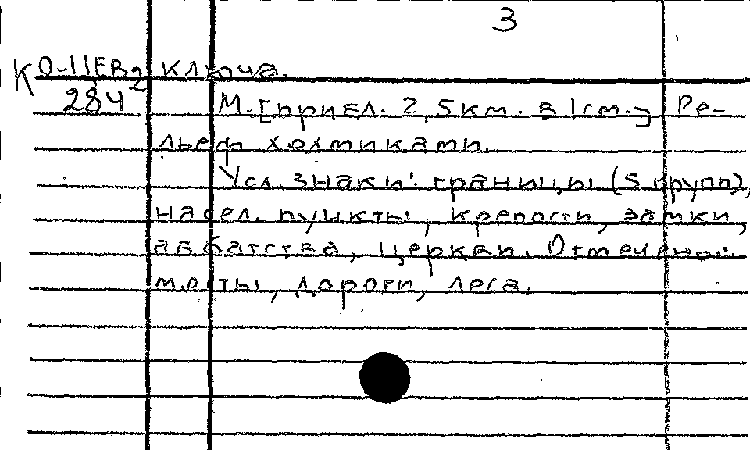 3
К О-ЦЕВ2 ключа.
284 М.[прибл. 2,5км. в 1см.] Ре-
льеф холмиками.
Усл. знаки: границы (5 групп),
насел. пункты, крепости, замки,
аббатства, церкви. Отмечены
мосты, дороги, леса.